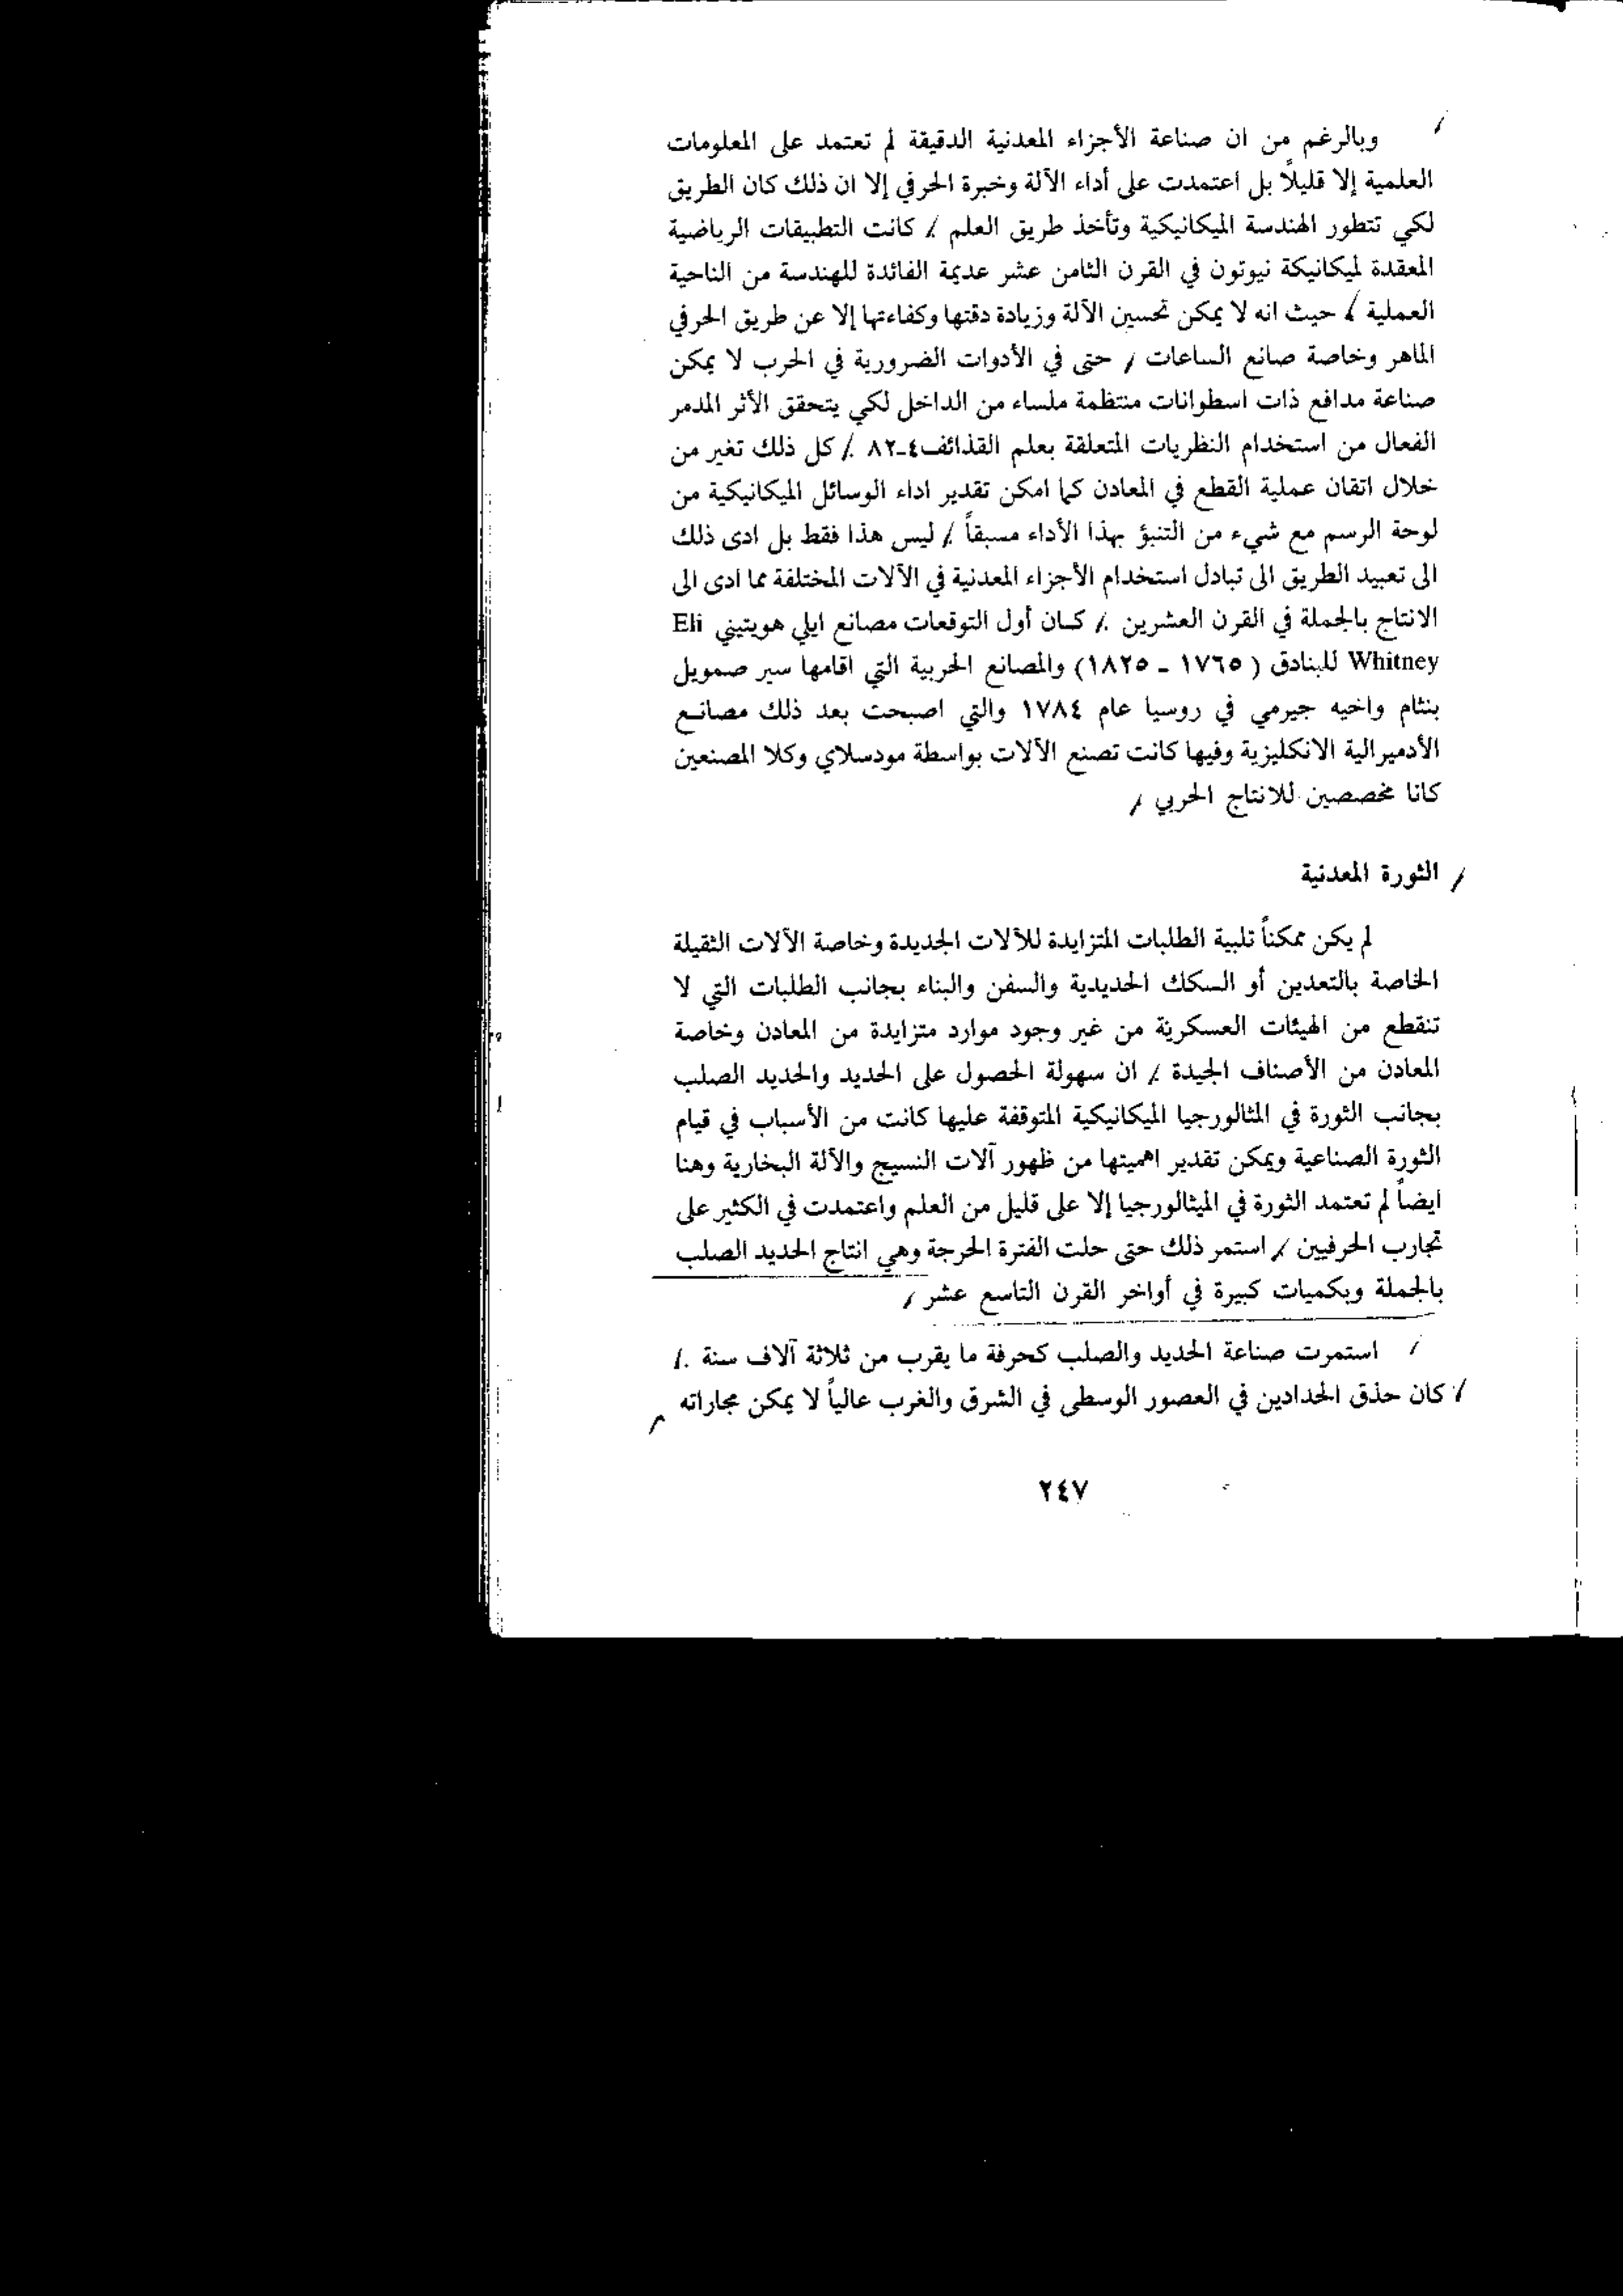 وبالرغم من ان صناعة الأجزاء المعدنية الدقيقة لم تعتمد على المعلومات
العلمية إلا قليلاً بل اعتمدت على أداء الآلة وخبرة الحرفي إلا ان ذلك كان الطريق
لكي تتطور الهندسة الميكانيكية وتأخذ طريق العلم . كانت التطبيقات الرياضية
المعقدة لميكانيكة نيوتون في القرن الثامن عشر عديمة الفائدة للهندسة من الناحية
العملية ، حيث انه لا يمكن تحسين الآلة وزيادة دقتها وكفاءتها إلا عن طريق الحرفي
الماهر وخاصة صانع الساعات . حتى في الأدوات الضرورية في الحرب لا يمكن
صناعة مدافع ذات اسطوانات منتظمة ملساء من الداخل لكي يتحقق الأثر المدمر
الفعال من استخدام النظريات المتعلقة بعلم القذائف٤-٨٢ . كل ذلك تغير من
خلال اتقان عملية القطع في المعادن كما امكن تقدير اداء الوسائل الميكانيكية من
لوحة الرسم مع شيء من التنبؤ بهذا الأداء مسبقاً . ليس هذا فقط بل ادى ذلك
الى تعبيد الطريق الى تبادل استخدام الأجزاء المعدنية في الآلات المختلفة مما ادى الى
الانتاج بالجملة في القرن العشرين . كان أول التوقعات مصانع ايلي هويتيني Eli
Whitney للبنادق ( ١٧٦٥ - ١٨٢٥) والمصانع الحربية التي اقامها سير صمويل
بنثام واخيه جيرمي في روسيا عام ١٧٨٤ والتي اصبحت بعد ذلك مصانع
الأدميرالية الانكليزية وفيها كانت تصنع الآلات بواسطة مودسلاي وكلا المصنعين
كانا مخصصين للانتاج الحربي .
الثورة المعدنية
لم يكن ممكناً تلبية الطلبات المتزايدة للآلات الجديدة وخاصة الآلات الثقيلة
الخاصة بالتعدين أو السكك الحديدية والسفن والبناء بجانب الطلبات التي لا
تنقطع من الهيئات العسكرية من غير وجود موارد متزايدة من المعادن وخاصة
المعادن من الأصناف الجيدة . ان سهولة الحصول على الحديد والحديد الصلب
بجانب الثورة في المثالورجيا الميكانيكية المتوقفة عليها كانت من الأسباب في قيام
الثورة الصناعية ويمكن تقدير اهميتها من ظهور آلات النسيج والآلة البخارية وهنا
ايضاً لم تعتمد الثورة في الميثالورجيا إلا على قليل من العلم واعتمدت في الكثير على
تجارب الحرفيين . استمر ذلك حتى حلت الفترة الحرجة وهي انتاج الحديد الصلب
بالجملة وبكميات كبيرة في أواخر القرن التاسع عشر .
استمرت صناعة الحديد والصلب كحرفة ما يقرب من ثلاثة آلاف سنة .
كان حذق الحدادين في العصور الوسطى في الشرق والغرب عالياً لا يمكن مجاراته
٢٤٧